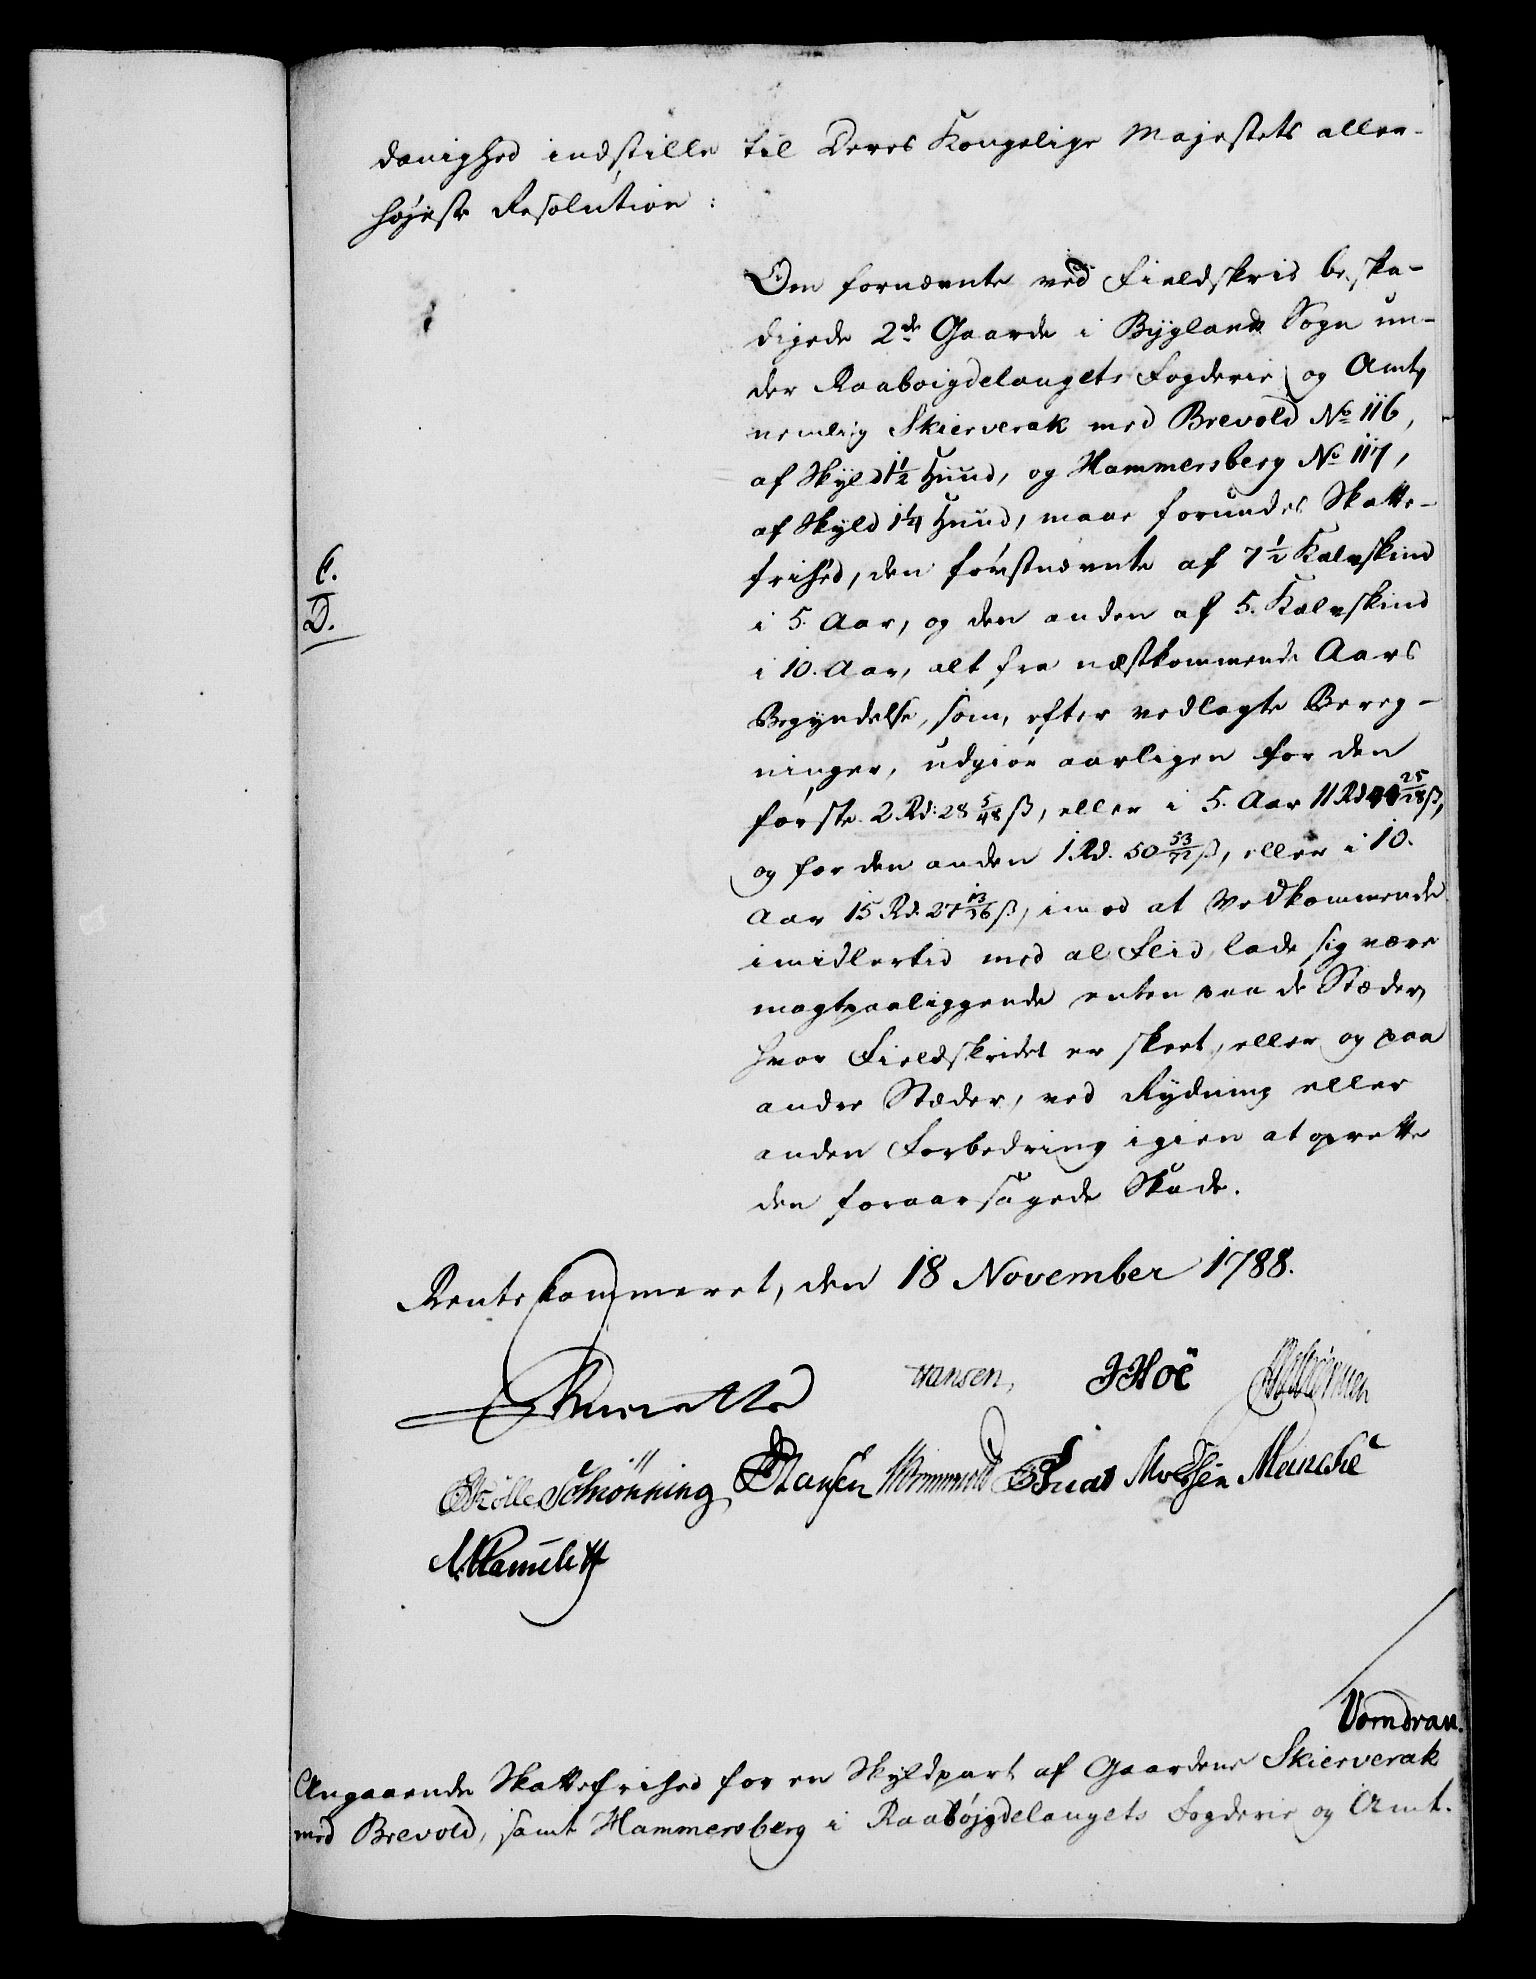 danighed indstille til Deres Kongelige Majestets aller-
højeste Resolution:
Om fornævnte ved Fieldskrid beska-
digede 2de Gaarde i Bygland Sogn un-
der Raaboigdelaugets Fogderie og Amt,
nemlig Skierverak med Brevold No 116,
af Skyld 1 1/2 Huud, og Hammersberg No 117,
af Skyld 1 1/4 Huud, maae forundes Skatte-
frihed, den førstnævnte af 7 1/2 Kalvskind
C.
i 5. Aar, og den anden af 5. Kalvskind
D.
i 10. Aar, alt fra næstkommende Aars
Begyndelse, som, efter vedlagte Bereg-
ninger, udgiør aarligen for den
første 2 Rd: 28 5/48 ß, eller i 5. Aar 11 Rd 44 25/48 ß,
og for den anden 1 Rd. 50 53/72 ß, eller i 10.
Aar 15 Rd. 27 13/36 ß, imod at Vedkommende
imidlertid med al Fliid lade sig være
magtpaaliggende enten paa de Stæder,
hvor Fieldskridet er skeet, eller og paa
andre Stæder, ved Rydning eller
anden Forbedring igien at oprette
den foraarsagede Skade.
Rentekammeret, den 18 November 1788.
Hansen, JHoë
Schiønning Hansen Wormwold Knud Moessin Manche
Vorndran.
Angaaende Skattefrihed for en Skyldpart af Gaardene Skierverak
med Brevold, samt Hammersberg i Raabøjgdelaugets Fogderie og Amt.